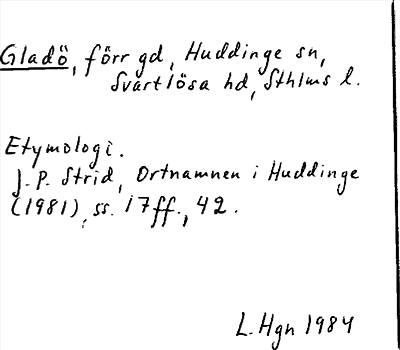 Gladö, förr gd, Huddinge sn,
Svartlösa hd, Sthlms l.
Etymologi.
J.P. Strid, Ortnamnen i Huddinge
(1981), ss. 17ff., 42.
L. Hgn 1984